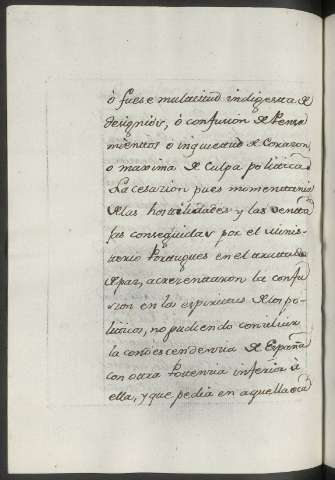 ò fuese multitud indigesta de
designios, ò confusion de Pensa
mientos o inquietud de Corazon,
o maxima de Culpa politica.
La cesazion pues momentanea
de las hostilidades y las venta
jas conseguidas por el Minis
terio Portugues en el tratado
de paz, acrezentaron la confu
sion en los espiritus de los po
liticos, no pudiendo conciliar
la condescendencia de España
con otra Potencia inferior à
ella, y que pedia en aquella